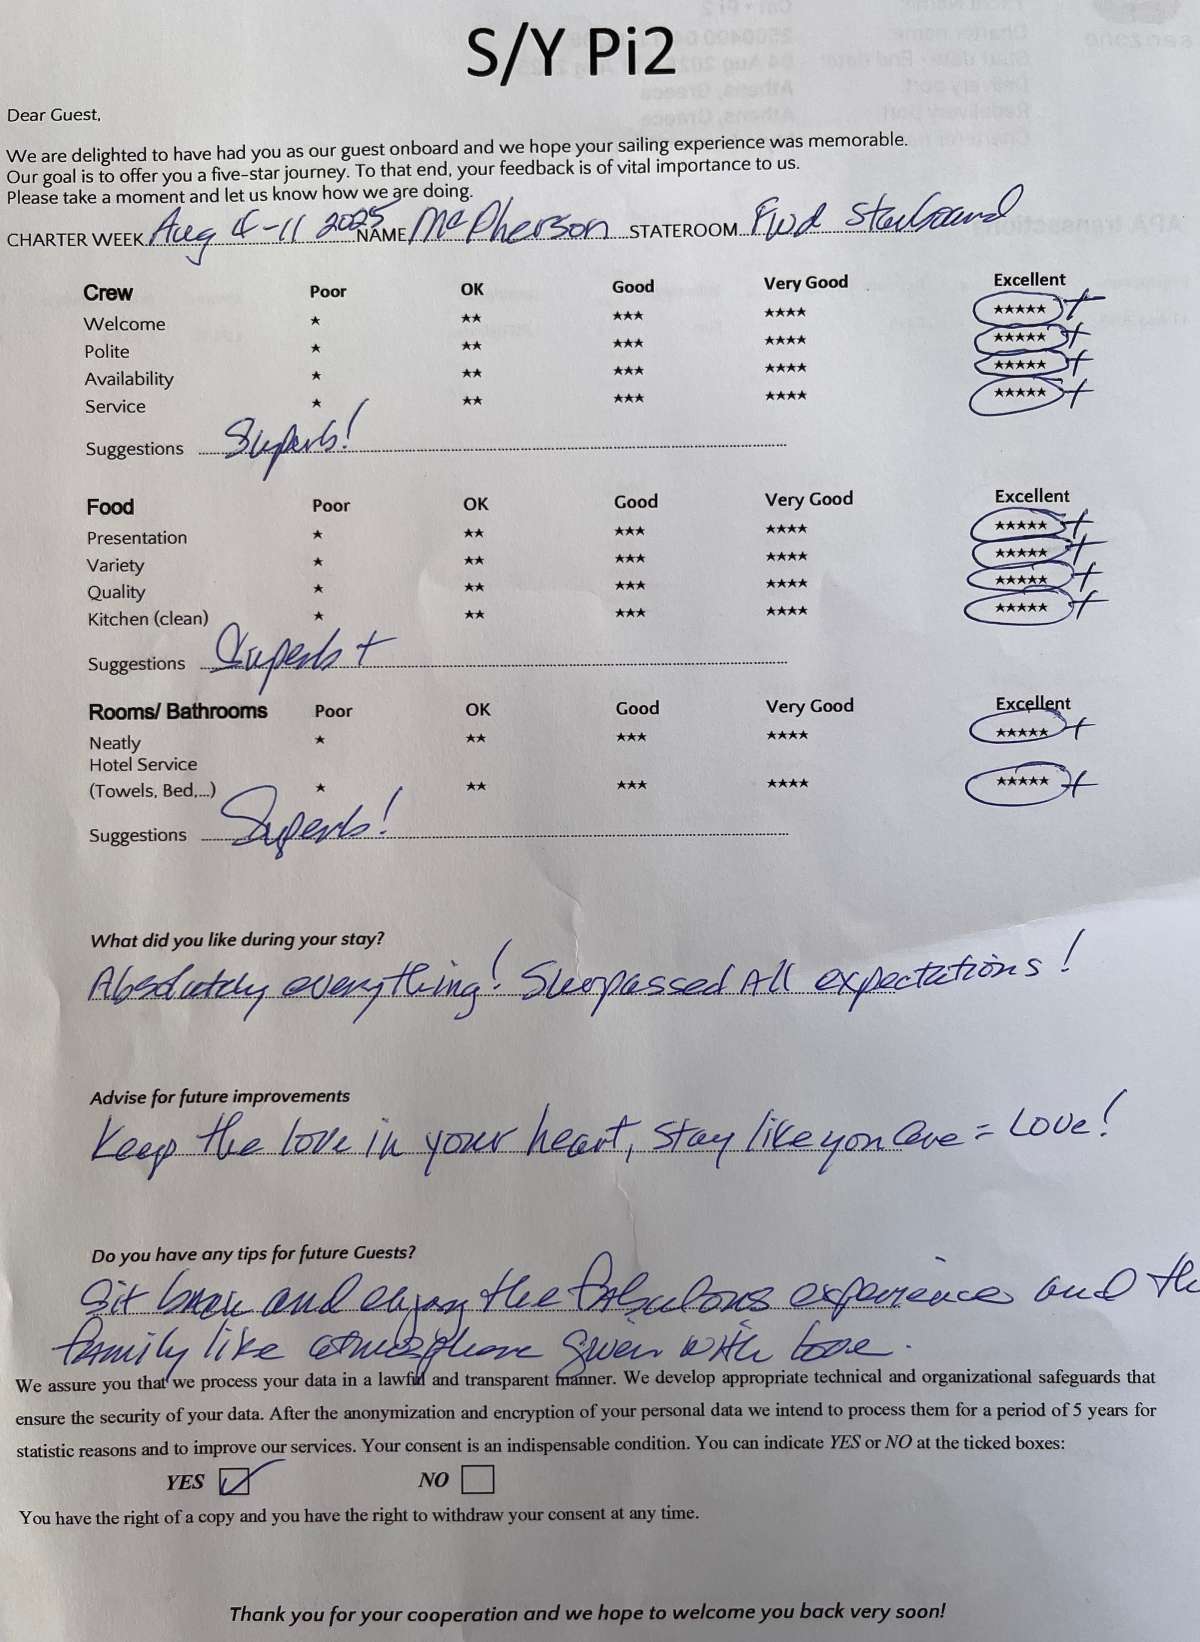 S/Y Pi2
Dear Guest,
We are delighted to have had you as our guest onboard and we hope your sailing experience was memorable.
Our goal is to offer you a five-star journey. To that end, your feedback is of vital importance to us.
Please take a moment and let us know how we are doing.
CHARTER WEEK Aug 4-11 2025 NAME McPherson STATEROOM Fwd Starboard
Crew Poor OK Good Very Good Excellent
Welcome ★ ★★ ★★★ ★★★★ ★★★★★ +
Polite ★ ★★ ★★★ ★★★★ ★★★★★ +
Availability ★ ★★ ★★★ ★★★★ ★★★★★ +
Service ★ ★★ ★★★ ★★★★ ★★★★★ +
Suggestions Superb!
Food Poor OK Good Very Good Excellent
Presentation ★ ★★ ★★★ ★★★★ ★★★★★ +
Variety ★ ★★ ★★★ ★★★★ ★★★★★ +
Quality ★ ★★ ★★★ ★★★★ ★★★★★ +
Kitchen (clean) ★ ★★ ★★★ ★★★★ ★★★★★ +
Suggestions Superb +
Rooms/ Bathrooms Poor OK Good Very Good Excellent
Neatly ★ ★★ ★★★ ★★★★ ★★★★★ +
Hotel Service
(Towels, Bed,...) ★ ★★ ★★★ ★★★★ ★★★★★ +
Suggestions Superb!
What did you like during your stay?
Absolutely everything! Surpassed All expectations!
Advise for future improvements
Keep the love in your heart, stay like you are = Love!
Do you have any tips for future Guests?
Sit back and enjoy the fabulous experience and the
family like atmosphere given with love.
We assure you that we process your data in a lawful and transparent manner. We develop appropriate technical and organizational safeguards that
ensure the security of your data. After the anonymization and encryption of your personal data we intend to process them for a period of 5 years for
statistic reasons and to improve our services. Your consent is an indispensable condition. You can indicate YES or NO at the ticked boxes:
YES ☑ NO ☐
You have the right of a copy and you have the right to withdraw your consent at any time.
Thank you for your cooperation and we hope to welcome you back very soon!